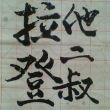 他二叔
按登